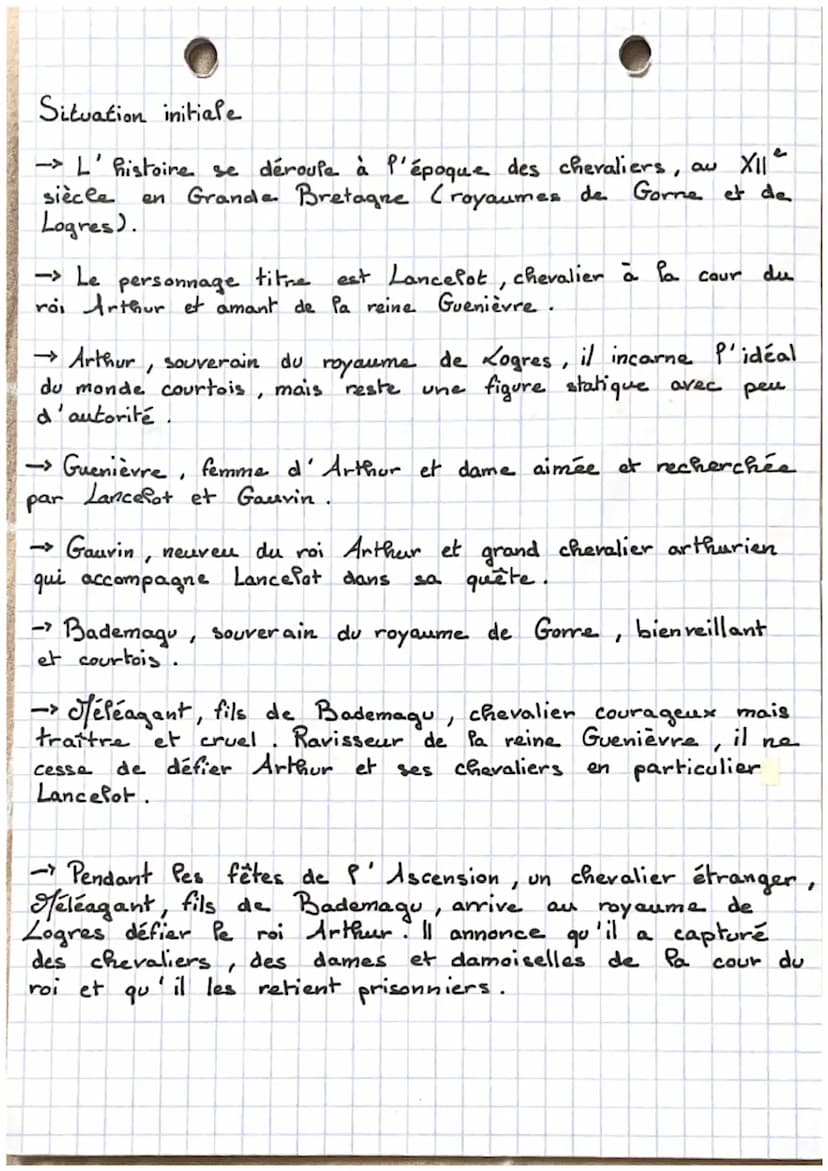 Situation initiale
→ L'histoire se déroule à l'époque des chevaliers, au XIIe
siècle en Grande Bretagne (royaumes de Gorre et de
Logres).
→ Le personnage titre est Lancelot, chevalier à la cour du
roi Arthur et amant de la reine Guenièvre.
→ Arthur, souverain du royaume de Logres, il incarne l'idéal
du monde courtois, mais reste une figure statique avec peu
d'autorité.
→ Guenièvre, femme d'Arthur et dame aimée et recherchée
par Lancelot et Gauvin.
→ Gauvin, neuveu du roi Arthur et grand chevalier arthurien
qui accompagne Lancelot dans sa quête.
→ Bademagu, souverain du royaume de Gorre, bienveillant
et courtois.
→ Méléagant, fils de Bademagu, chevalier courageux mais
traître et cruel. Ravisseur de la reine Guenièvre, il ne
cesse de défier Arthur et ses chevaliers en particulier
Lancelot.
→ Pendant les fêtes de l'Ascension, un chevalier étranger,
Méléagant, fils de Bademagu, arrive au royaume de
Logres défier le roi Arthur. Il annonce qu'il a capturé
des chevaliers, des dames et damoiselles de la cour du
roi et qu'il les retient prisonniers.